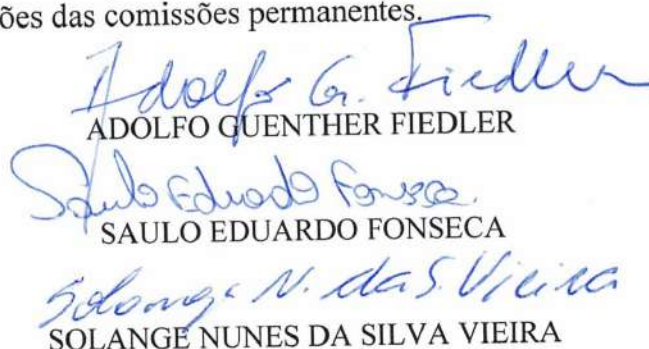 ões das comissões permanentes.
Adolfo G. Fiedler
ADOLFO GUENTHER FIEDLER
Saulo Eduardo Fonseca.
SAULO EDUARDO FONSECA
Solange N. da S. Vieira
SOLANGE NUNES DA SILVA VIEIRA